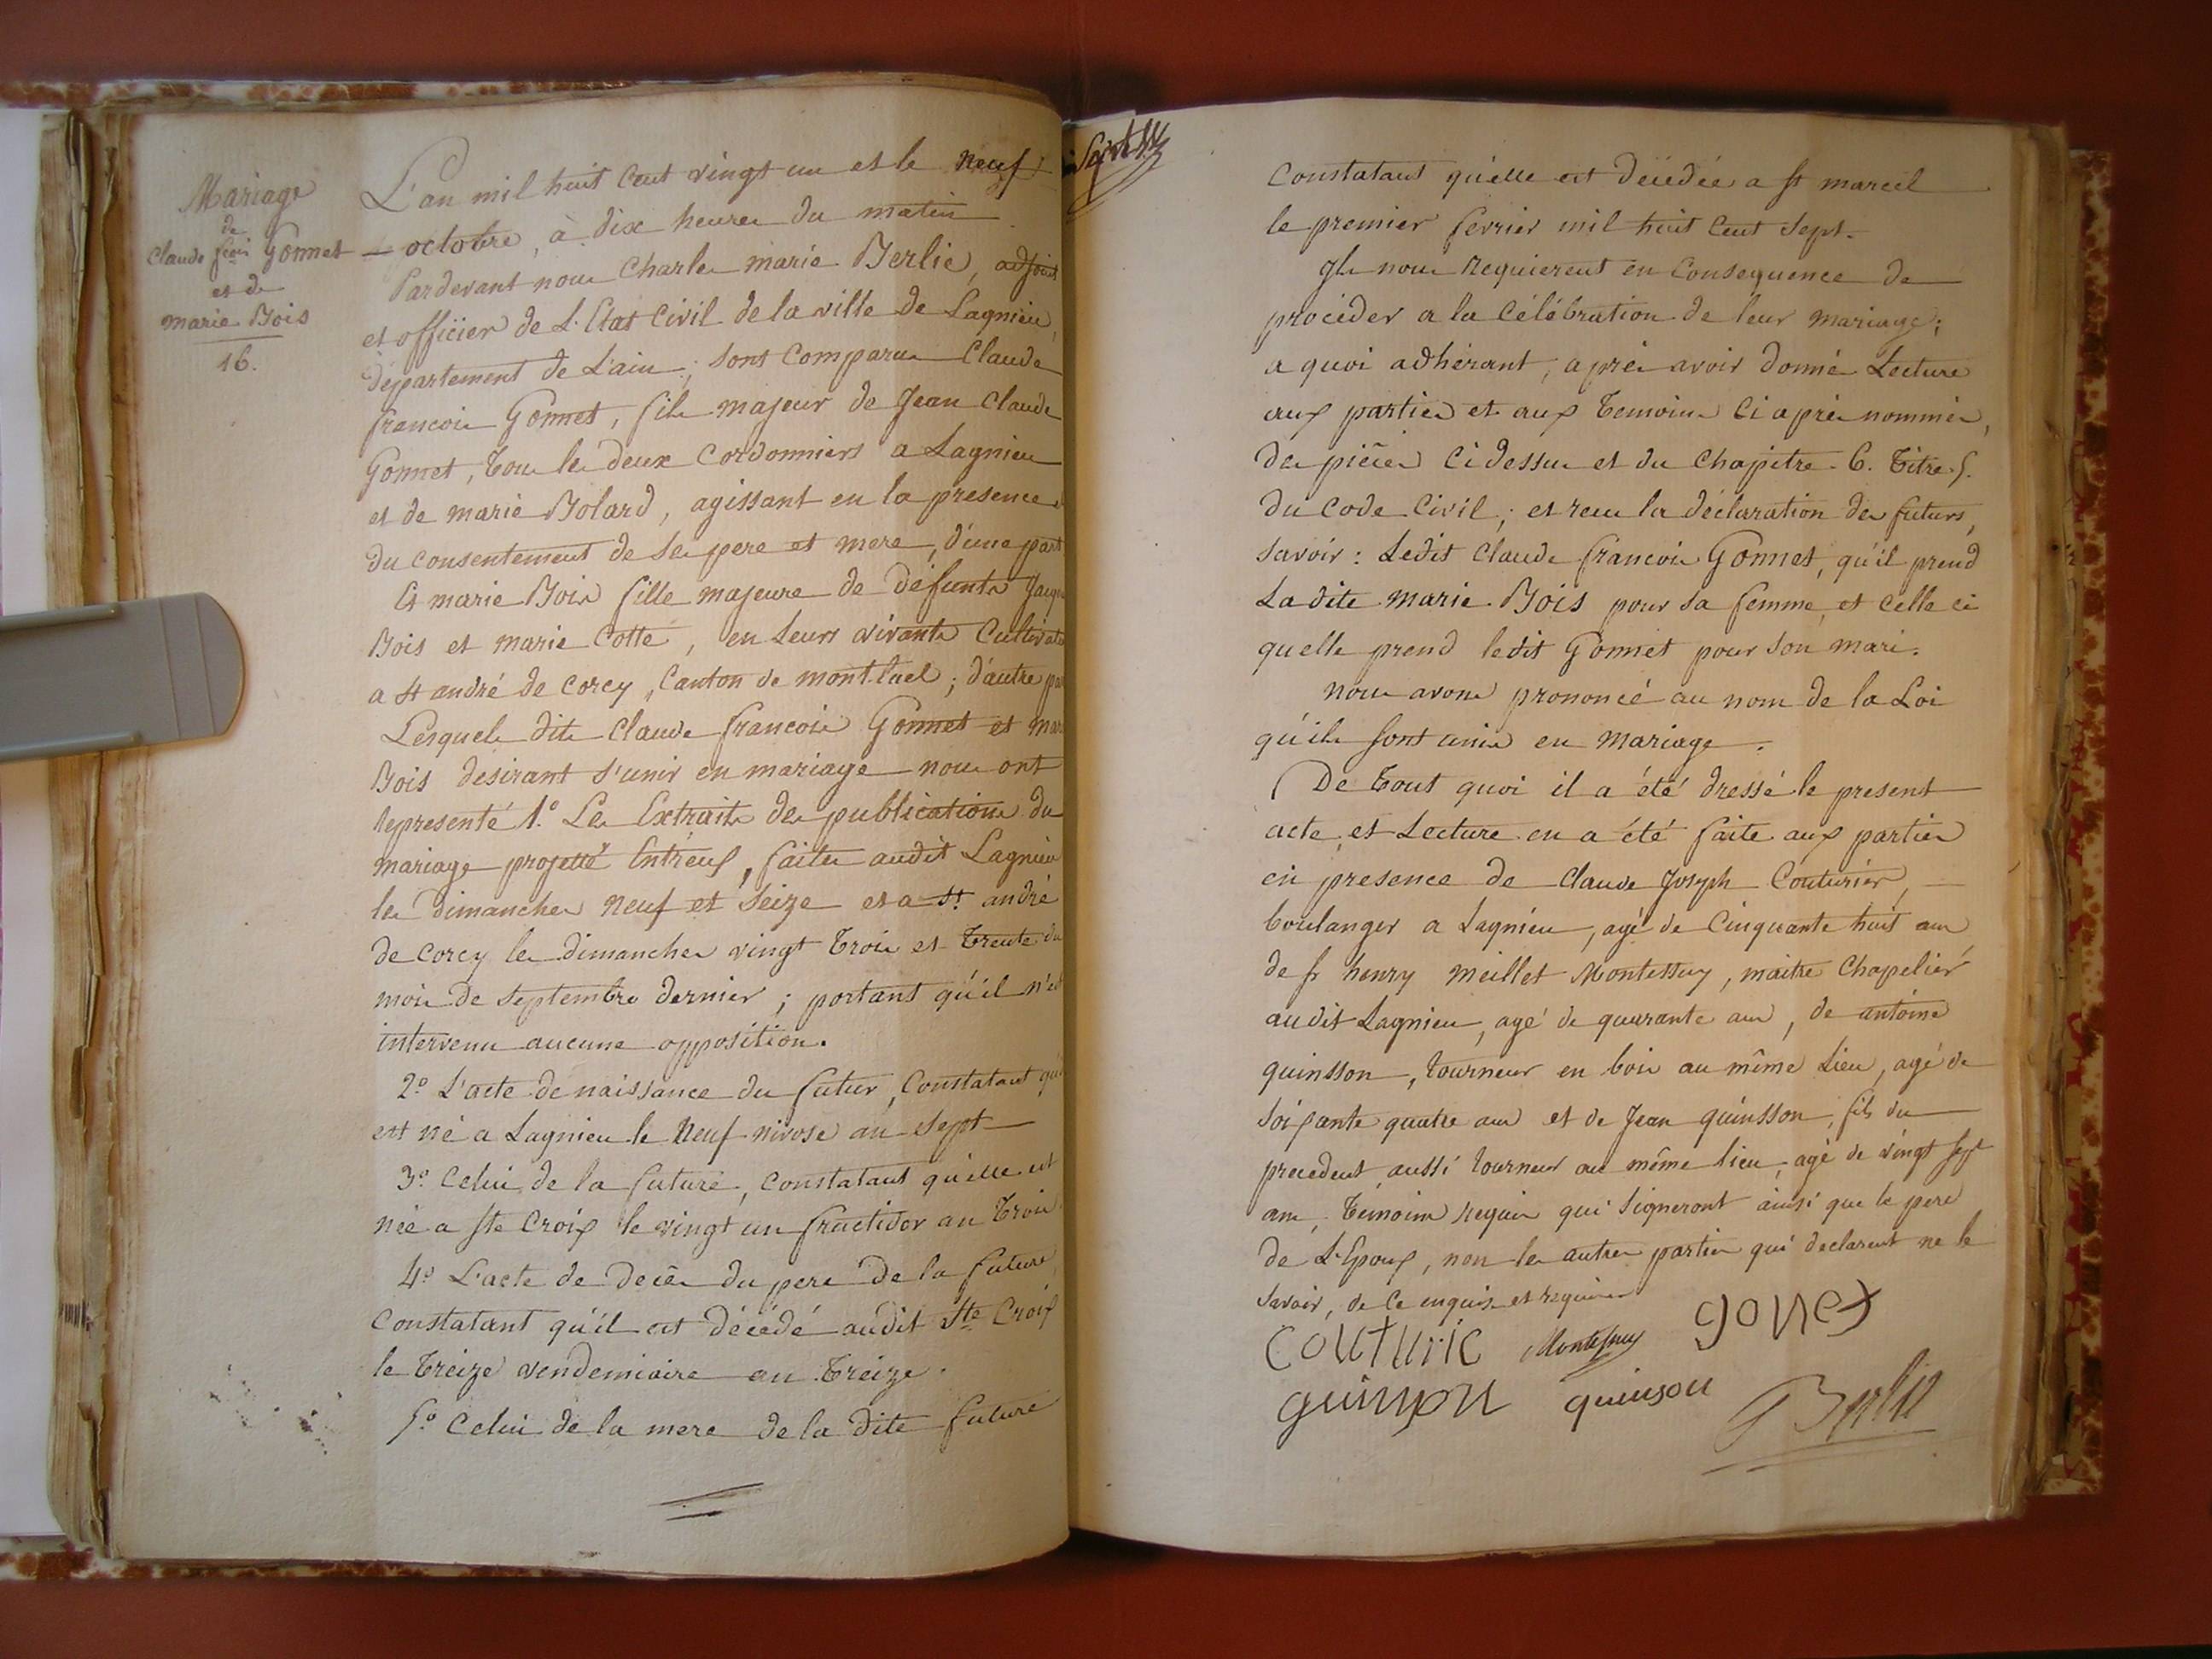 Mariage
de
Claude fcois Gonnet
et de
marie Bois
16.
L'an mil huit Cent vingt un et le neuf
octobre, à dix heures du matin
Pardevant nous Charles marie Berlie, adjoint
et officier de L'Etat Civil de la ville de Lagnieu,
département de L'ain; sont Comparus Claude
francois Gonnet, fils majeur de Jean Claude
Gonnet, tous les deux Cordonniers a Lagnieu
et de marie Bolard, agissant en la presence
du consentement de ses pere et mere, d'une part
Et marie Bois fille majeure de défunts Jacqu
Bois et marie Cotte, en Leurs vivants Cultivate
a st andré de Corcy, Canton de montluel; d'autre pa
Lesquels dits Claude francois Gonnet et mar
Bois desirant s'unir en mariage nous ont
representé 1.º Les Extraits des publications du
mariage projetté Entreux, faites audit Lagnieu
les dimanches neuf et seize et a st. andré
de Corcy les dimanches vingt trois et trente du
mois de septembre dernier; portant qu'il n'est
intervenu aucune opposition.
2º L'acte de naissance du futur, Constatant qu'i
est né a Lagnieu le neuf nivose an sept
3º Celui de la future, constatant qu'elle est
née a ste Croix le vingt un fructidor an trois
4º L'acte de decès du pere de la future,
Constatant qu'il est décédé audit Ste Croix
le treize vendemiaire an treize.
5º Celui de la mere de la dite future
Constatant qu'elle est decédée a st marcel
le premier fevrier mil huit Cent sept.
Ils nous Requierent en Consequence de
procéder a la Célébration de leur mariage;
a quoi adhérant, après avoir donné Lecture
aux parties et aux temoins Ci après nommés,
des pièces Ci dessus et du Chapitre 6. titre 5.
du Code Civil; et recu la déclaration des futurs,
savoir: Ledit Claude francois Gonnet, qu'il prend
La dite marie Bois pour sa femme, et celle ci
quelle prend ledit Gonnet pour son mari.
nous avons prononcé au nom de la Loi
qu'ils sont unis en mariage.
De tout quoi il a été dressé le present
acte, et Lecture en a été faite aux parties
en presence de Claude Joseph Couturier,
boulanger a Lagnieu, agé de Cinquante huit ans
de fs henry meillet Montessuy, maitre Chapelier
audit Lagnieu, agé de quarante ans, de antoine
quinsson, tourneur en bois au même Lieu, agé de
soixante quatre ans et de Jean quinsson, fils du
precedent, aussi tourneur au même lieu, agé de vingt sept
ans, témoins requis qui signeront ainsi que le pere
de L'Epoux, non les autres parties qui declarent ne le
savoir, de Ce enquis et requis
Couturie Montessuy gonet
quinson quinson Berlie